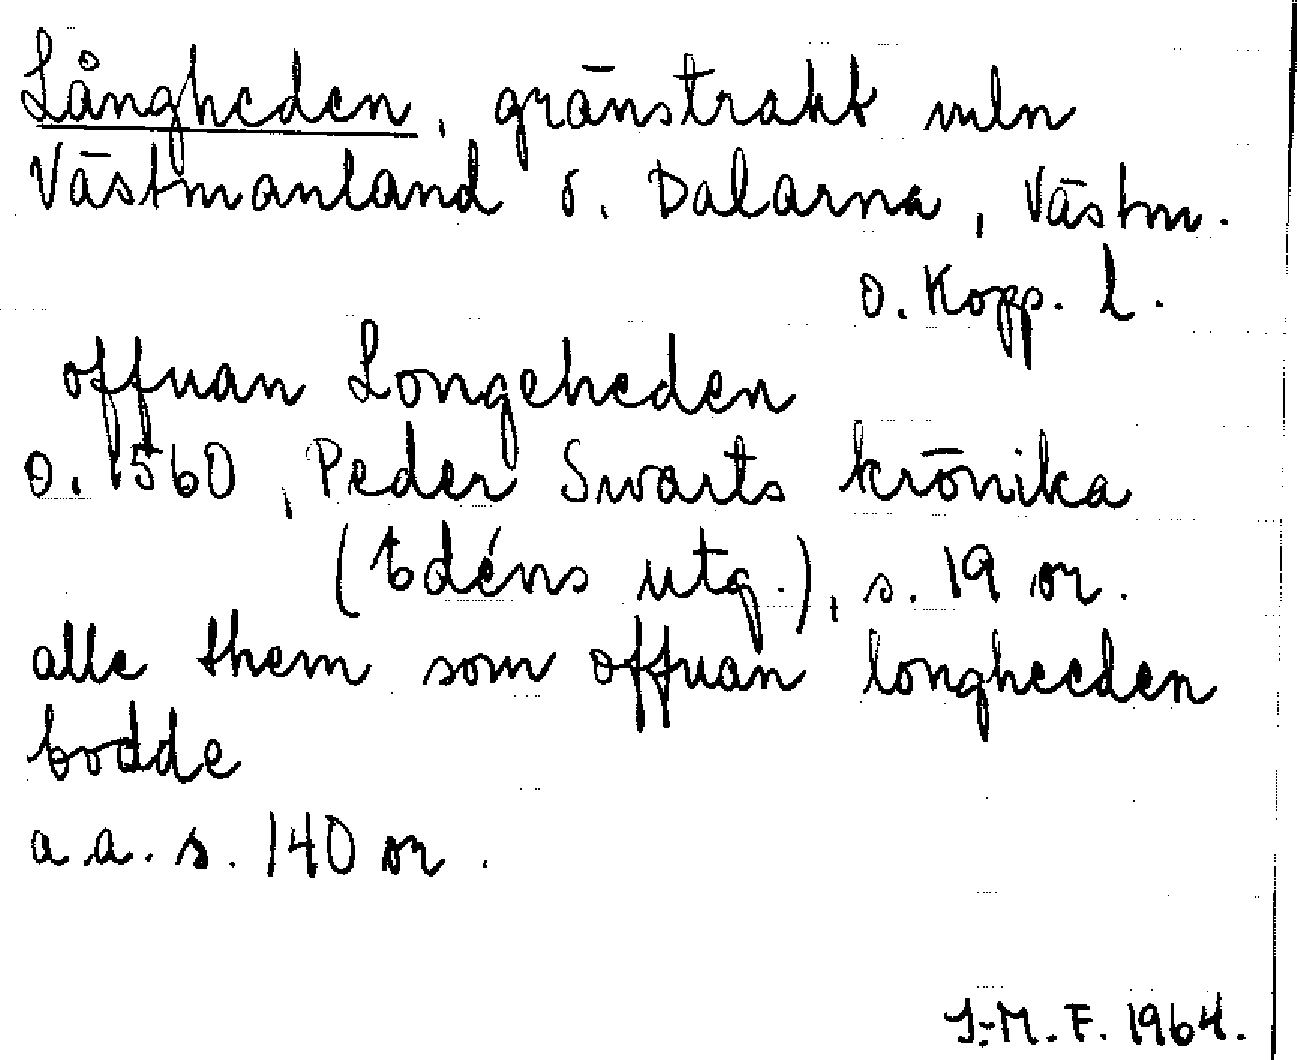 Långheden, gränstrakt mln
Västmanland o. Dalarna, Västm.
o. Kopp. l.
offuan Longeheden
o. 1560, Peder Swarts krönika
(Edéns utg.), s. 19 or.
alle them som offuan longheeden
bodde
a a. s. 140 or.
I-M. F. 1964.